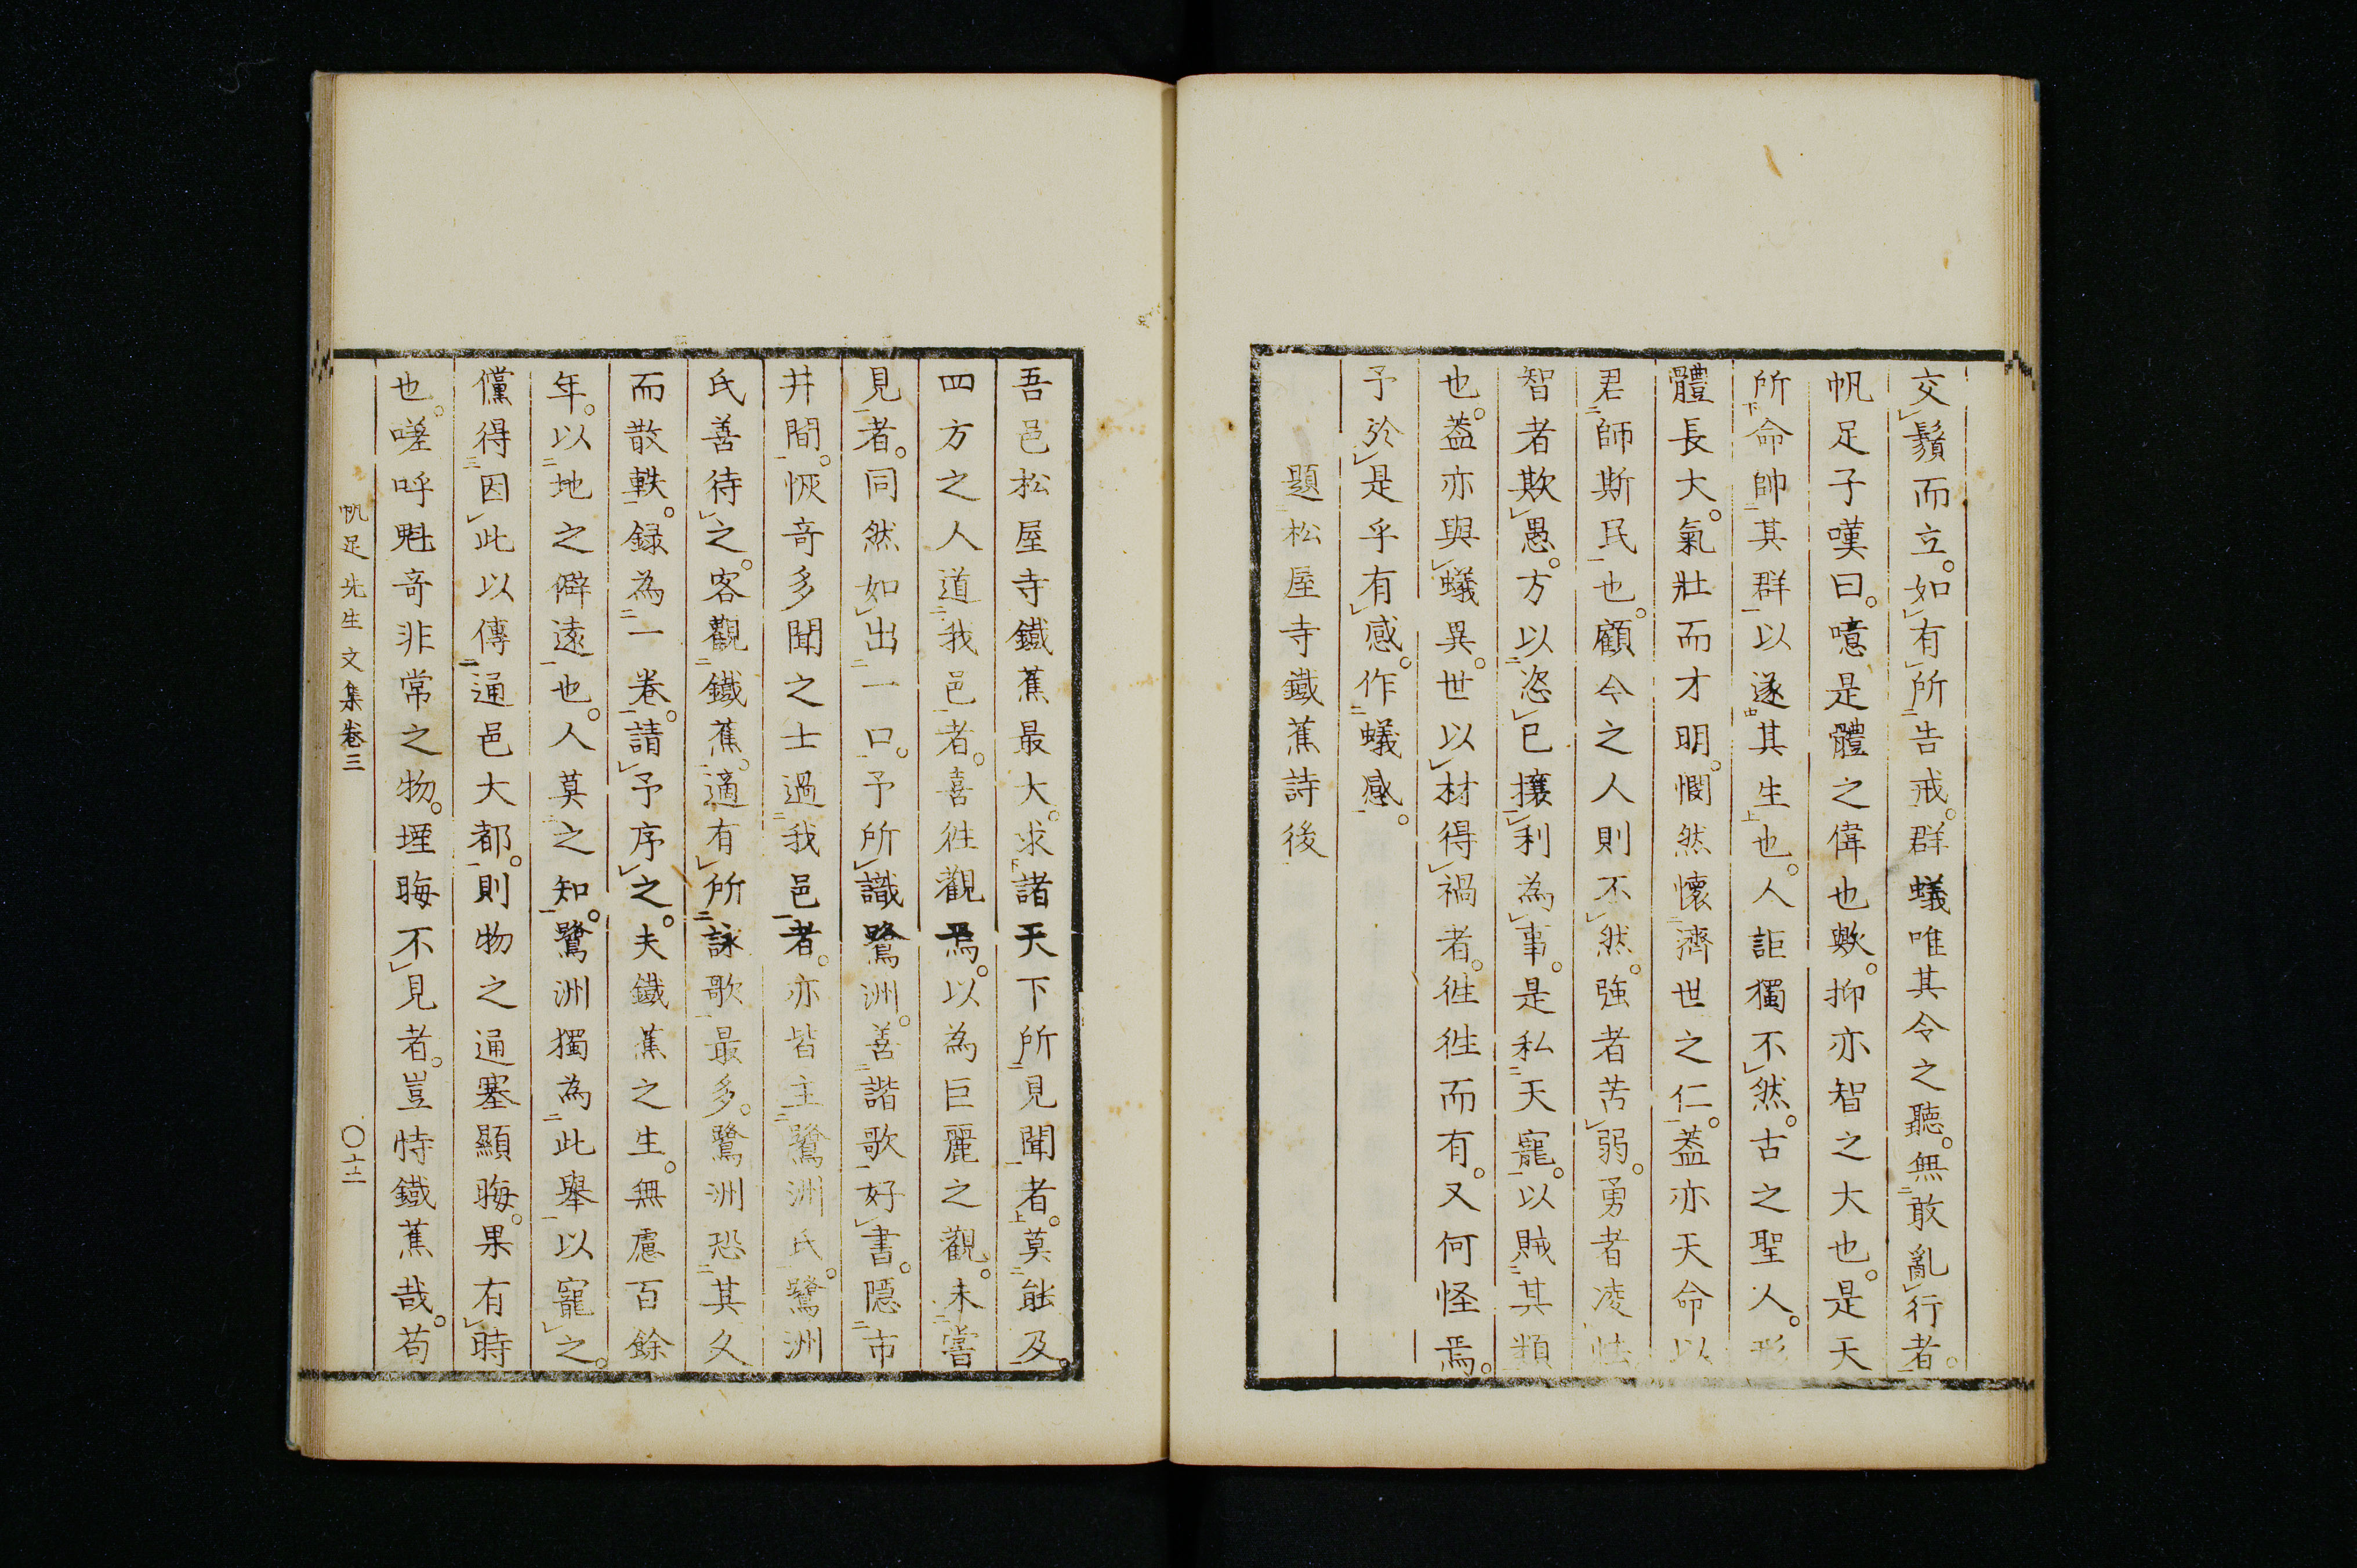 交鬚而立。如有所告戒。群蟻唯其令之聽。無敢亂行者。
帆足子嘆曰。噫是體之偉也歟。抑亦智之大也。是天
所命帥其群以遂其生也。人詎獨不然。古之聖人。形
體長大。氣壯而才明。憫然懷濟世之仁。蓋亦天命以
君師斯民也。顧今之人則不然。強者苦弱。勇者凌怯
智者欺愚。方以恣己攘利為事。是私天寵。以賊其類
也。蓋亦與蟻異。世以材得禍者。徃徃而有。又何怪焉。
予於是乎有感。作蟻感。
題松屋寺鐵蕉詩後
吾邑松屋寺鐵蕉最大。求諸天下所見聞者。莫能及。
四方之人道我邑者。喜徃觀焉。以為巨麗之觀。未嘗
見者。同然如出一口。予所識鷺洲。善諧歌好書。隱市
井間。恢奇多聞之士過我邑者。亦皆主鷺洲氏。鷺洲
氏善待之。客觀鐵蕉。適有所詠歌最多。鷺洲恐其久
而散軼。録為一卷。請予序之。夫鐵蕉之生。無慮百餘
年。以地之僻遠也。人莫之知。鷺洲獨為此舉以寵之。
儻得因此以傳通邑大都。則物之通塞顯晦。果有時
也。嗟呼魁奇非常之物。堙晦不見者。豈恃鐵蕉哉。苟
帆足先生文集卷三 〇十二